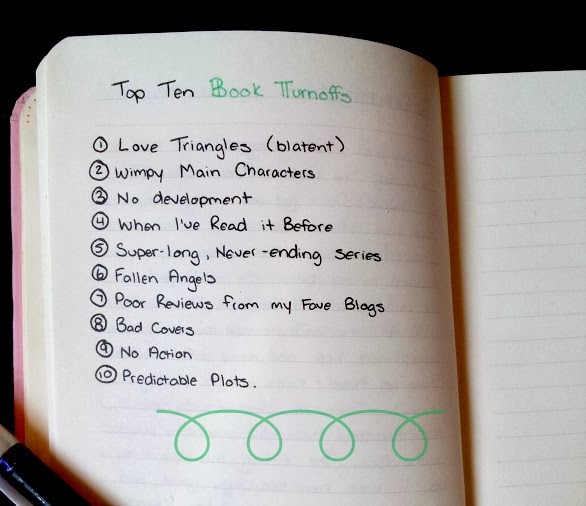 Top Ten Book Turnoffs
① Love Triangles (blatent)
② Wimpy Main Characters
③ No development
④ When I've Read it Before
⑤ Super-long, Never-ending series
⑥ Fallen Angels
⑦ Poor Reviews from my Fave Blogs
⑧ Bad Covers
⑨ No Action
⑩ Predictable Plots.